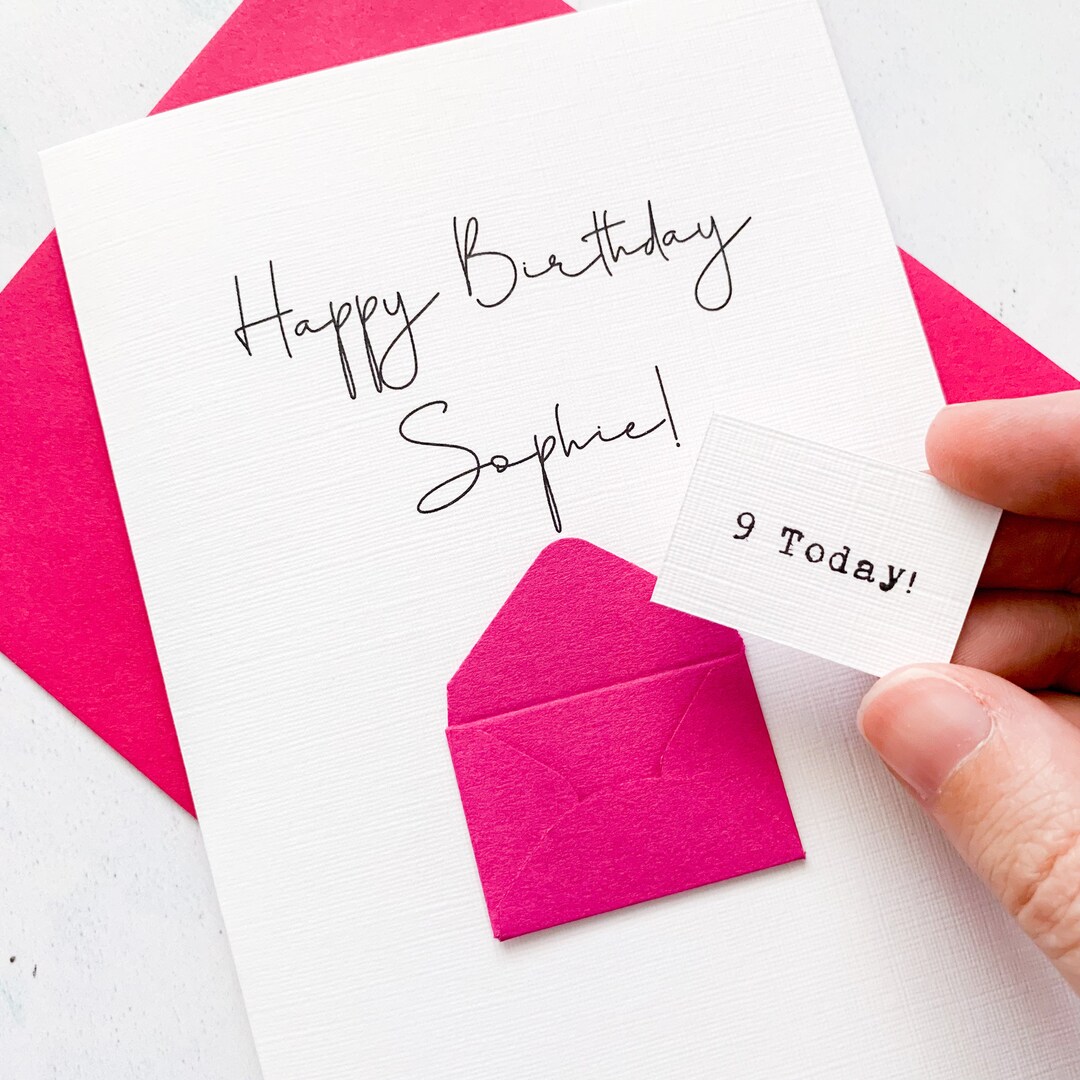 Happy Birthday
Sophie!
9 Today!